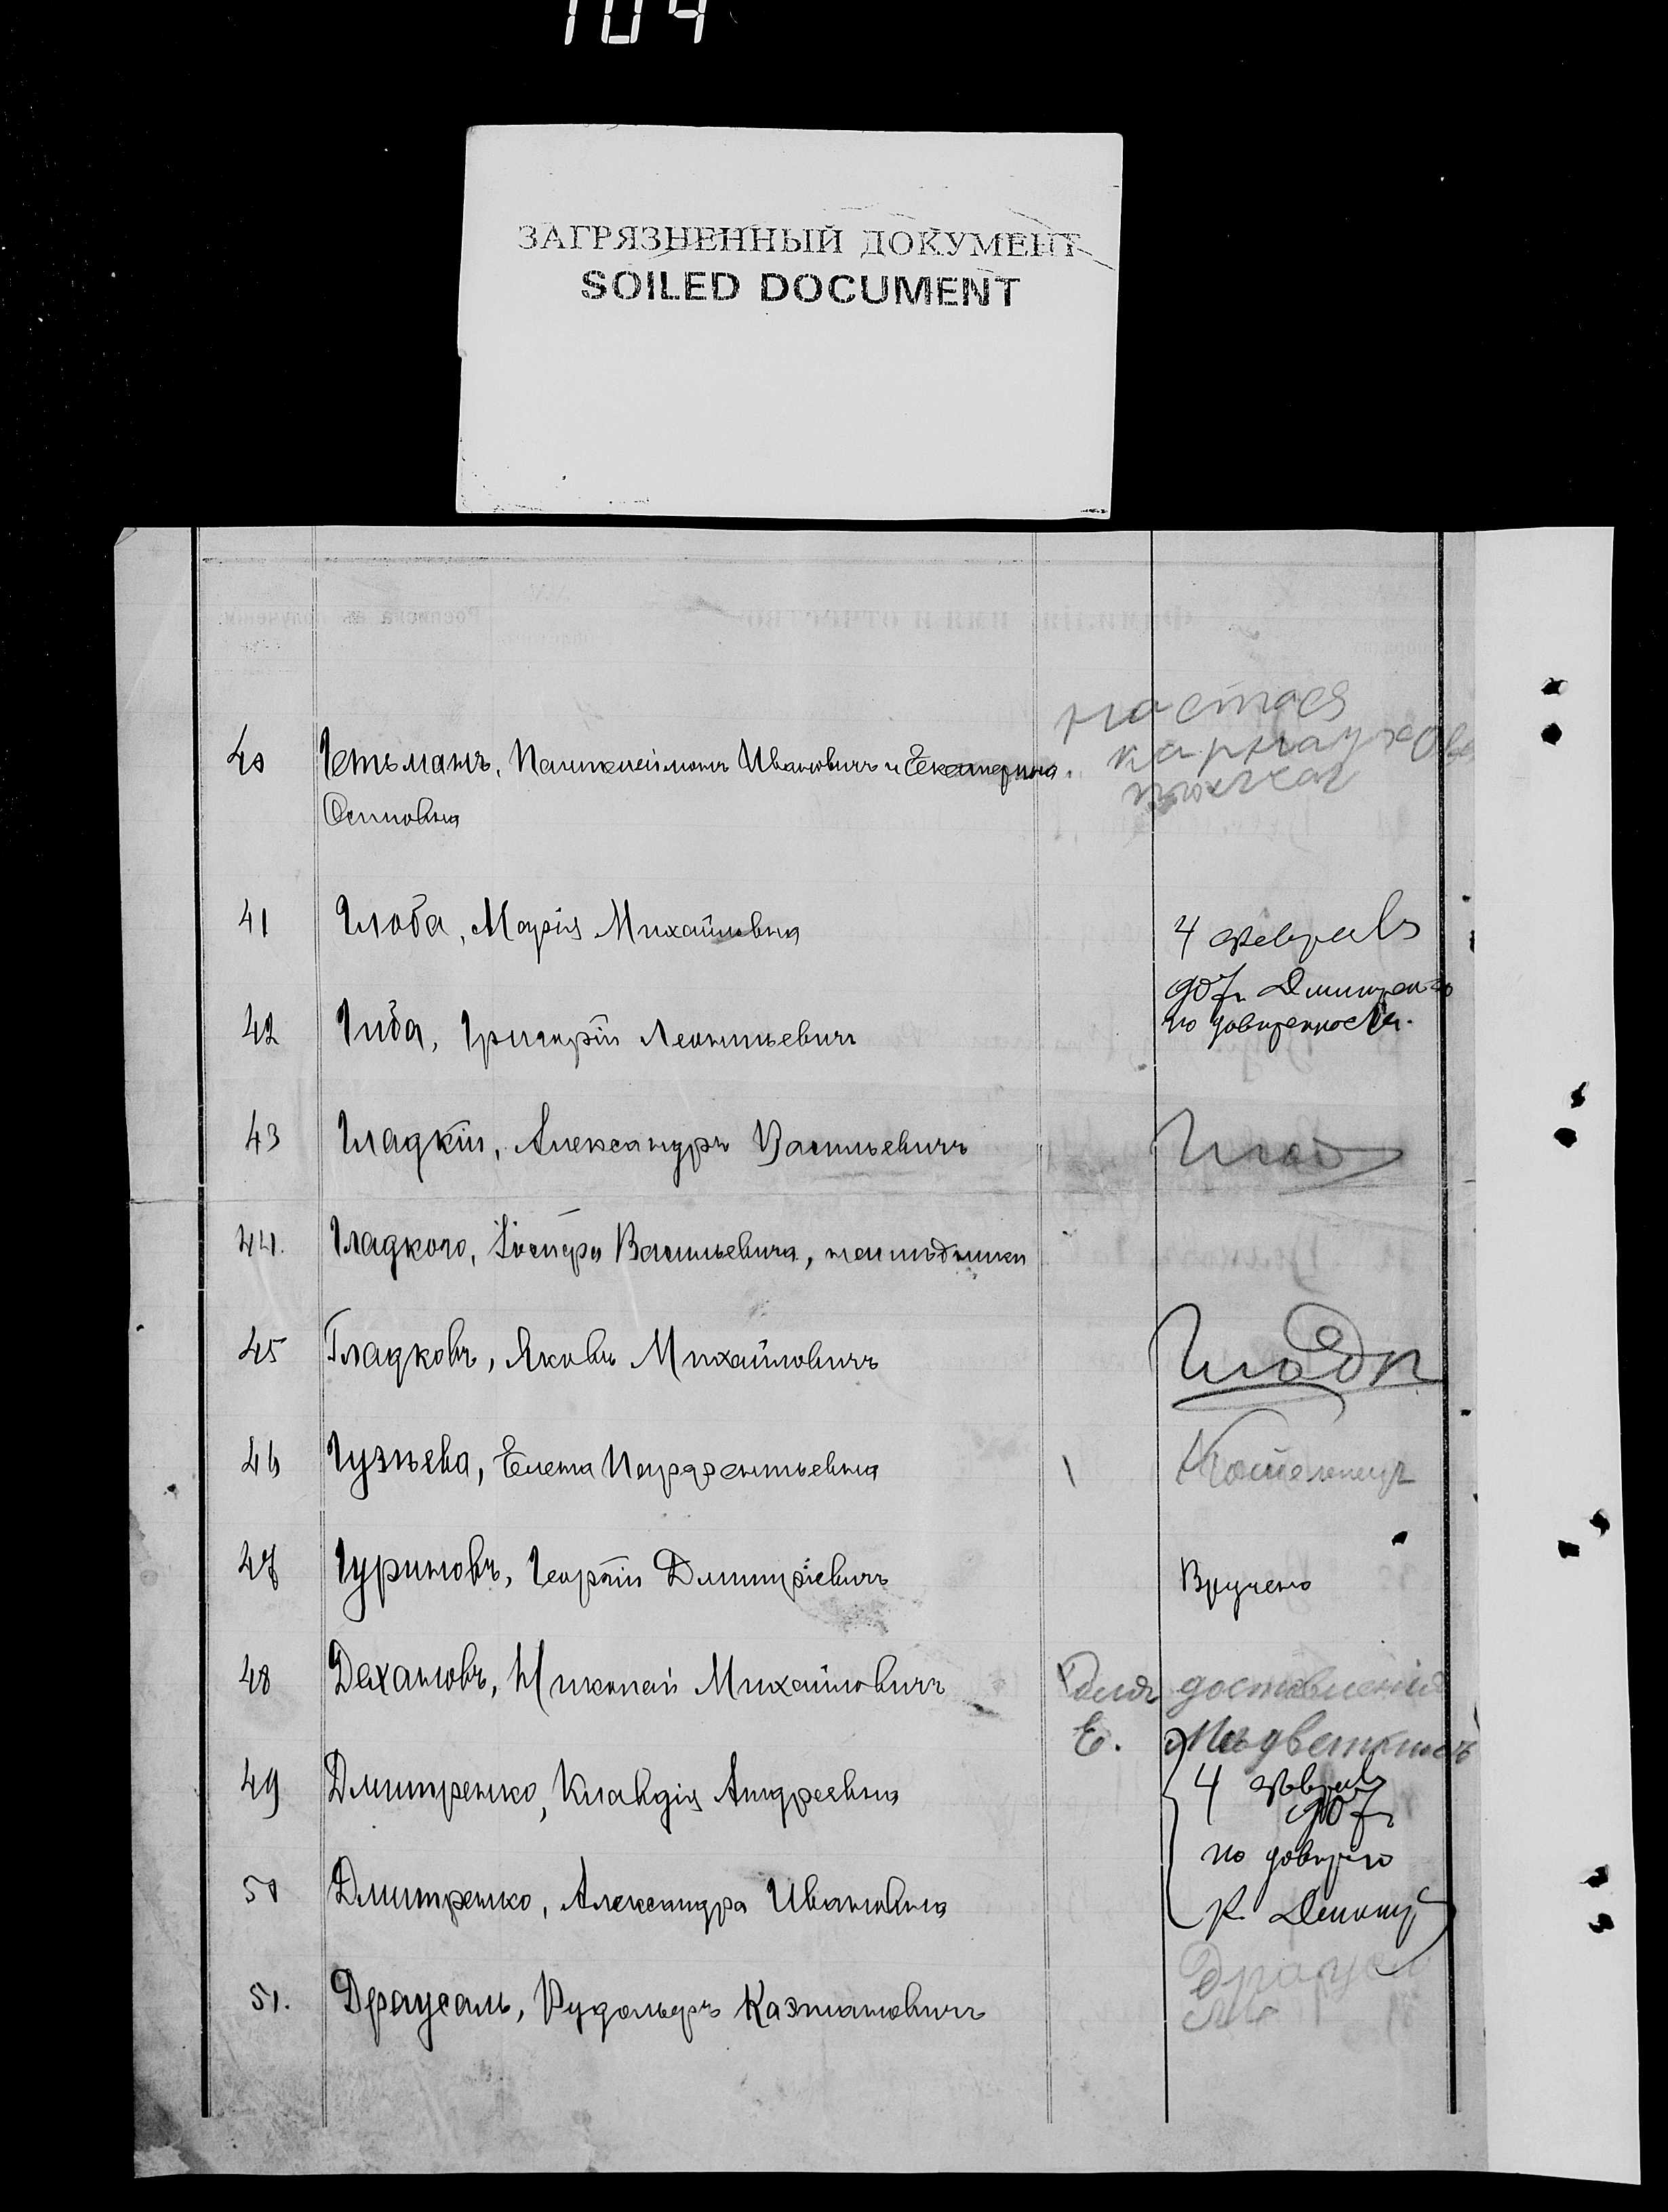 104
ЗАГРЯЗНЕННЫЙ ДОКУМЕНТ
SOILED DOCUMENT
40 Гетьманъ, Пантелеймонъ Ивановичъ и Екатерина
Осиповна
41 Глоба, Марія Михайловна
4 февраля
907 г. Дмитренко
по довѣренности.
42 Гиба, Григорій Леонтьевичъ
43 Гладкій, Александръ Васильевичъ Глад
44. Гладкого, Іосифа Васильевича, наслѣдники
45 Гладковъ, Яковъ Михайловичъ Гладк
46 Гузѣева, Елена Парфентьевна
47 Гуриновъ, Георгій Дмитріевичъ Вручено
48 Дехановъ, Николай Михайловичъ Для доставленія
Е.
49 Дмитренко, Клавдія Андреевна
4 февраля
907 г.
по довѣрію
50 Дмитренко, Александра Ивановна
К.
51. Драусаль, Рудольфъ Казмановичъ